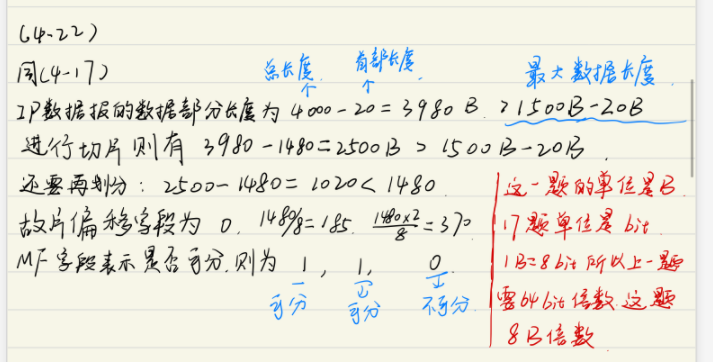 (4-22)
同(4-17)
总长度 首部长度 最大数据长度
IP数据报的数据部分长度为 4000-20=3980 B. >1500B-20B
进行切片则有 3980-1480=2500B > 1500B-20B
还要再划分: 2500-1480=1020<1480
故片偏移字段为 0. 1480/8=185. 1480×2/8=370
MF字段表示是否可分,则为 1, 1, 0
可分 可分 不可分
这一题的单位是B
17题单位是bit
1B=8bit 所以上一题
需64bit倍数 这题
8B倍数